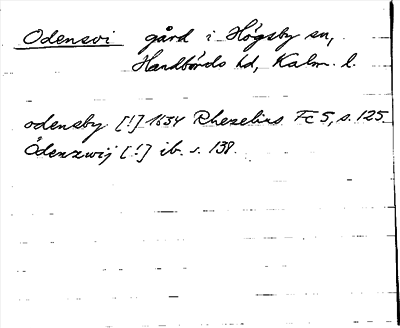 Odensvi gård i Högsby sn,
Handbörds hd, Kalm. l.
odensby [!] 1634 Rhezelius Fc 5, s. 125.
Ödenzwij [!] ib. s. 138.